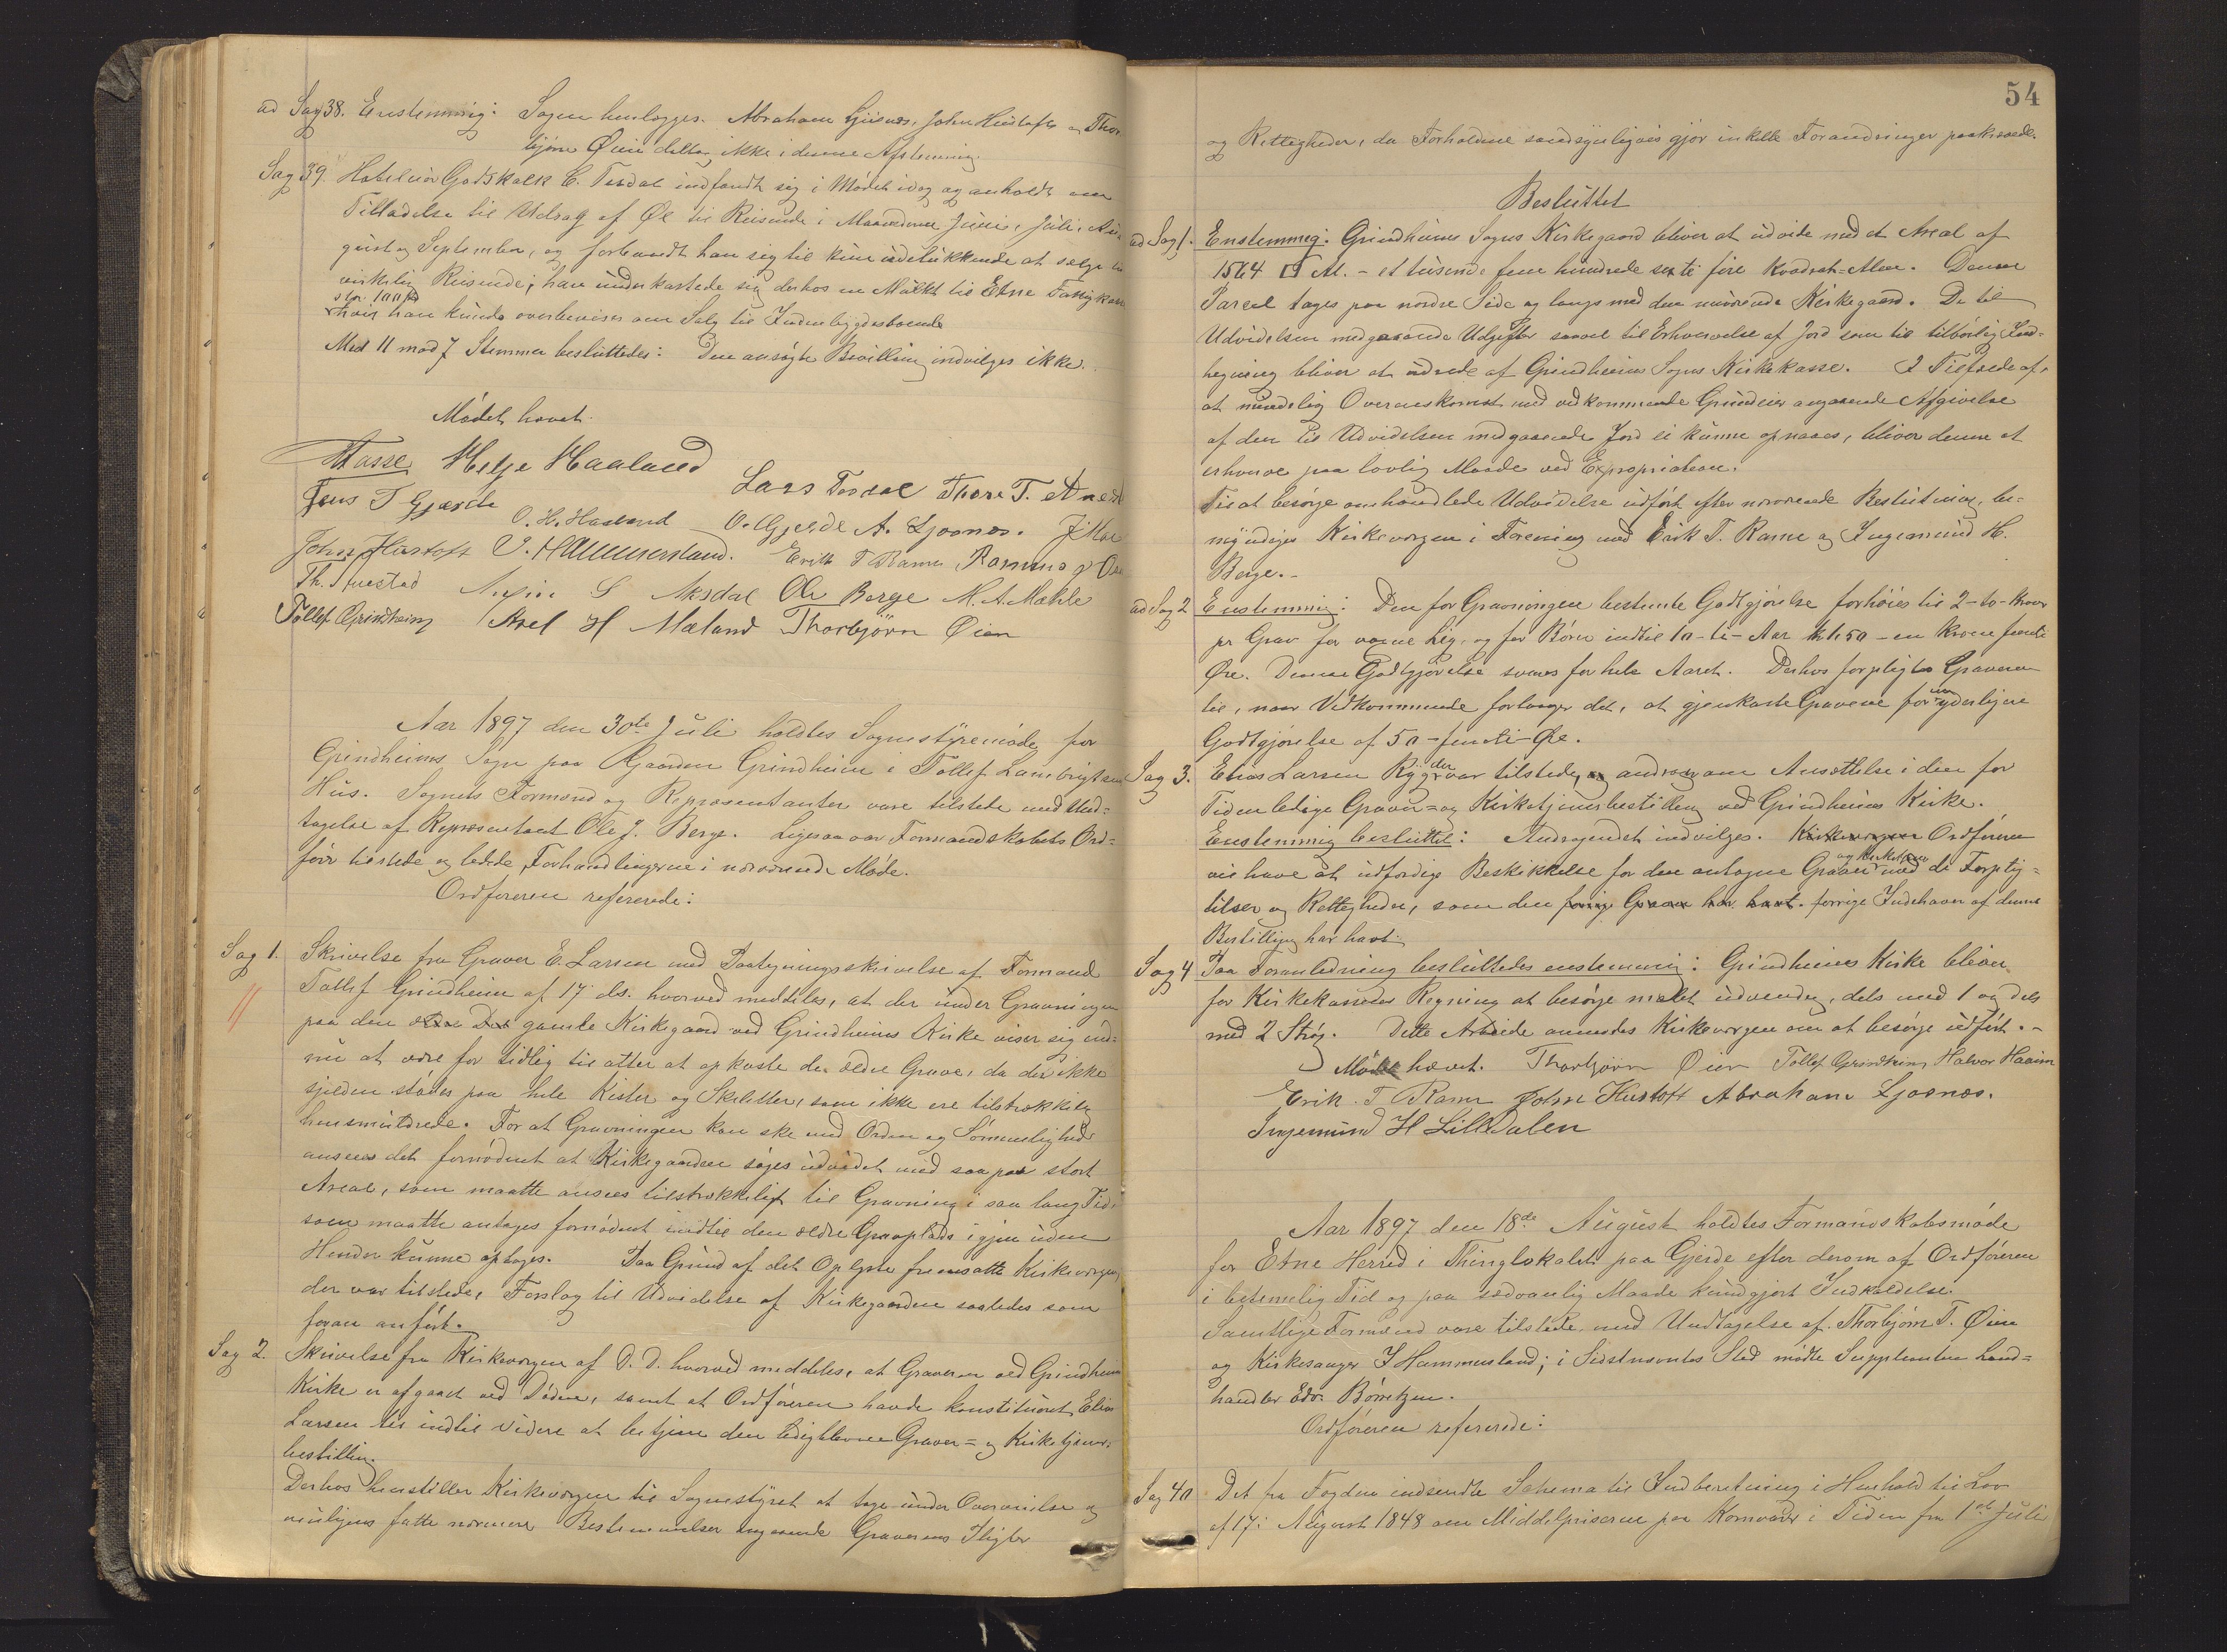 ad Sag 38. Enstemmig: Sagen henlægges. Abraham Ljosnæs, John Hustoft og Thor-
bjørn Øien deltog ikke i denne Afstemning.
Sag 39. Hoteleier Godskalk C. Tesdal indfandt sig i Mødet idag og anholdt om
Tilladelse til Udsalg af Øl til Reisende i Maanederne Juni, Juli, Au-
gust og September, og forbandt han sig til kun udelukkende at sælge til
virkelig Reisende; han underkastede sig derhos en Mulkt til Etne Fattigkasse
stor 100 Kr
hvis han kunde overbevises om Salg til Indenbygdsboende
Med 11 mod 7 Stemmer besluttedes: Den ansøgte Bevilling indvilges ikke.
Mødet hævet.
Helje Haaland
Jens T Gjerde Lars Tesdal Thore T.
O. H. Haaland O. Gjerde A. Ljosnes.
John Hustoft J. Hammersland. Erik T Rame Rasmus
Th. Aksdal Ole Berge M. A. Mæhle
Tollef Grindheim Axel H Mæland Thorbjørn Øien
Aar 1897 den 30te Juli holdtes Sognestyremøde for
Grindheims Sogn paa Gaarden Grindheim i Tollef Lambrigtsens
Hus. Sognets Formænd og Repræsentanter vare tilstede med Und-
tagelse af Repræsentant Ole J. Berge. Ligesaa var Formandskabets Ord-
fører tilstede og ledede Forhandlingerne i nærværende Møde.
Ordføreren refererede:
Sag 1. Skrivelse fra Graver E. Larsen med Paategningsskrivelse af Formand
Tollef Grindheim af 17 ds. hvorved meddeles, at der under Gravningen
paa den gamle Kirkegaard ved Grindheims Kirke viser sig end-
nu at være for tidlig til atter at opkaste de ældre Grave, da der ikke
sjelden stødes paa hele Kister og Skeletter, som ikke ere tilstrækkelig
hensmuldrede. For at Gravningen kan ske med Orden og Sømmelighed
ansees det fornødent at Kirkegaarden søges udvidet med saa pas stort
Areal, som maatte ansees tilstrækkeligt til Gravning i saa lang Tid,
som maatte antages fornødent indtil den ældre Gravplads igjen uden
Hinder kunne optages. Paa Grund af det Oplyste fremsatte Kirkevergen,
der var tilstede, Forslag til Udvidelse af Kirkegaarden saaledes som
foran anført.
Sag 2. Skrivelse fra Kirkevergen af D. D. hvorved meddeles, at Graveren ved Grindheims
Kirke er afgaaet ved Døden, samt at Ordføreren havde konstitueret Elias
Larsen til indtil videre at betjene den ledigblevne Graver= og Kirketjener-
bestilling.
Derhos henstiller Kirkevergen til Sognestyret at tage under Overveielse og
muligens fatte nærmere Bestemmelser angaaende Graverens Pligter
54
og Rettigheder, da Forholdene sandsynligvis gjør enkelte Forandringer paakrævede.
Besluttet
ad Sag 1. Enstemmig: Grindheims Sogns Kirkegaard bliver at udvide med et Areal af
1564 □ Al. – et tusende fem hundrede sexti fire Kvadrat=Alen. Denne
Parcel tages paa nordre Side og langs med den nuværende Kirkegaard. De til
Udvidelsen medgaaende Udgifter saavel til Erhvervelse af Jord som til tilbørlig Ind-
hegning bliver at udrede af Grindheims Sogns Kirkekasse. I Tilfælde af,
at mindelig Overenskomst med vedkommende Grundeier angaaende Afgivelse
af den til Udvidelsen medgaaende Jord ei kunne opnaaes, bliver denne at
erhverve paa lovlig Maade ved Expropriation.
Til at besørge omhandlede Udvidelse udført efter nærværende Beslutning, be-
myndiges Kirkevergen i Forening med Erik T. Rame og Ingemund H.
Berge.–
ad Sag 2 Enstemmig: Den for Gravningen bestemte Godtgjørelse forhøies til 2 – to – Kroner
pr Grav for voxne Lig, og for Børn indtil 10 – ti – Aar Kr 1.50 – en Krone femti
Øre. Denne Godtgjørelse svares for hele Aaret. Derhos forpligtes Graveren
til, naar Vedkommende forlanger det, at gjenkaste Gravene for en yderligere
Godtgjørelse af 50 – femti – Øre.
Sag 3. Elias Larsen Rygg der var tilstede, androg om Ansættelse i den for
Tiden ledige Graver= og Kirketjenerbestilling ved Grindheims Kirke.
Enstemmig besluttet: Andragendet indvilges. Kirkevergen Ordføreren
vil have at udfærdige Beskikkelse for den antagne Graver og Kirketjener med de Forplig-
telser og Rettigheder, som den forrige Graver har havt. forrige Indehaver af denne
Bestilling har havt.
Sag 4 Paa Foranledning besluttedes enstemmig: Grindheims Kirke bliver
for Kirkekassens Regning at besørge malet udvendig, dels med 1 og dels
med 2 Strøg. Dette Arbeide anmodes Kirkevergen om at besørge udført.–
Mødet hævet. Thorbjørn Øien Tollef Grindheim Halvor Haaim
Erik T Rame John Hustoft Abraham Ljosnes.
Ingemund H Lilledalen
Aar 1897 den 18de August holdtes Formandskabsmøde
for Etne Herred i Thinglokalet paa Gjerde efter derom af Ordføreren
i betimelig Tid og paa sædvanlig Maade kundgjort Indkaldelse.
Samtlige Formænd vare tilstede med Undtagelse af Thorbjørn T. Øien
og Kirkesanger J Hammersland; i Sidstnævntes Sted mødte Supplenten Land=
handler Edv. Børretzen.
Ordføreren refererede:
Sag 40 Det fra Fogden indsendte Schema til Indberetning i Henhold til Lov
af 17: August 1848 om Middelpriserne paa Kornvarer i Tiden fra 1ste Juli